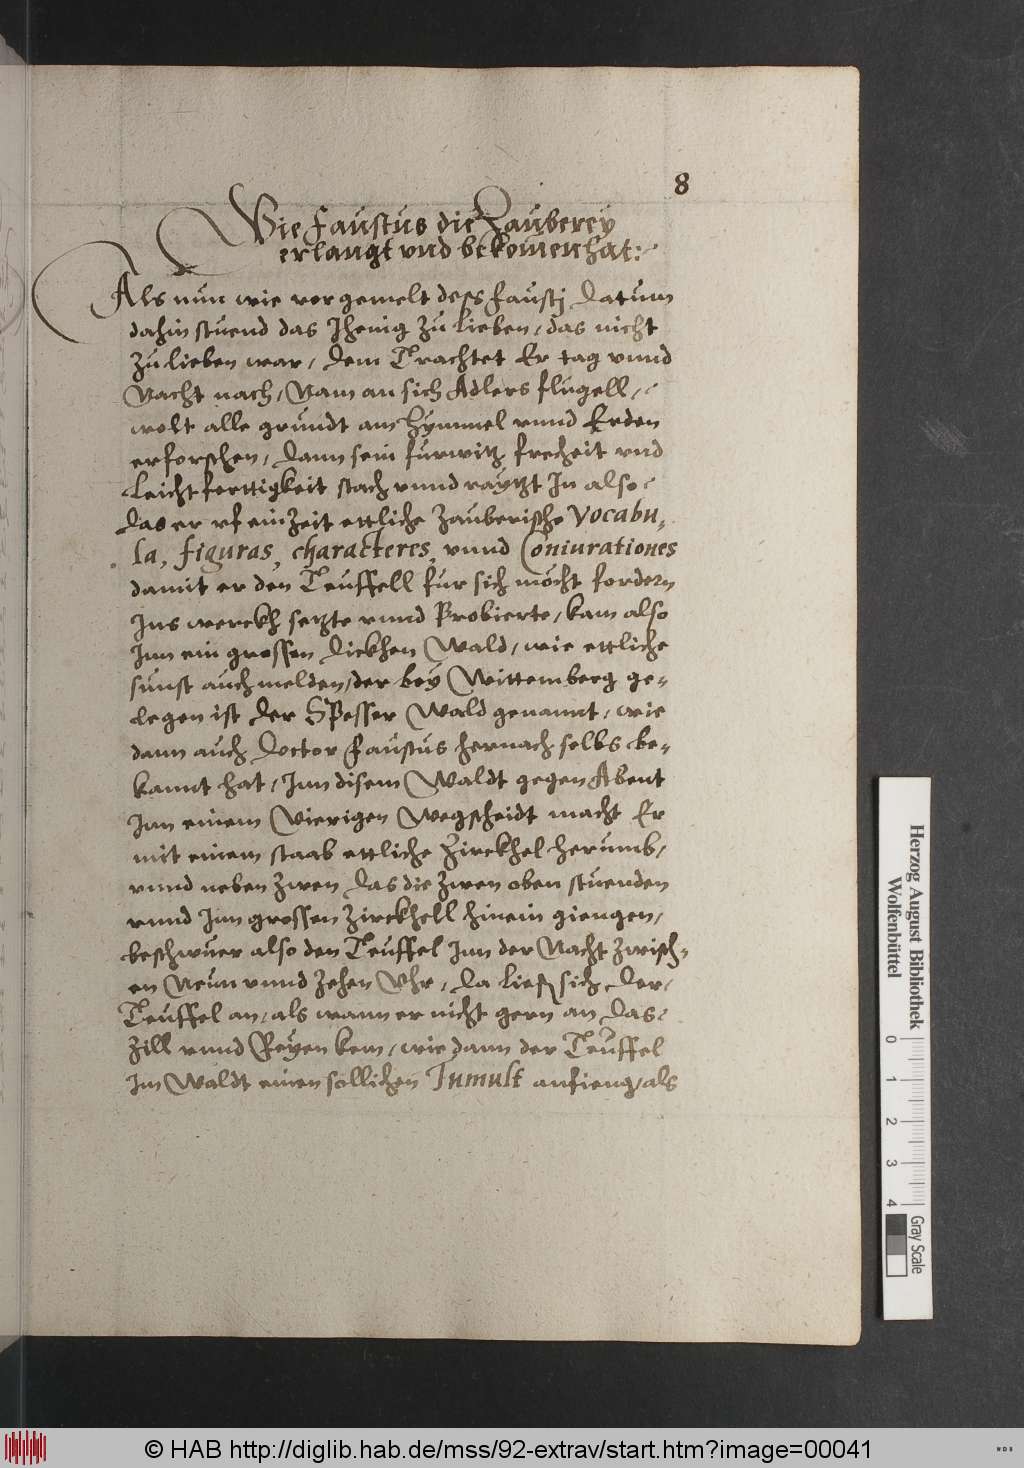 8
Wie Faustus die Zauberey
erlangt vnd bekomen hat:
Als nun wie vor gemelt dess Faustj Datum
dahin stuend das Jhenig zu lieben, das nicht
zu lieben war, dem Trachtet Er tag vnnd
Nacht nach, Nam an sich Adlers flugell,
wolt alle grundt am Hymmel vnnd Erden
erforschen, Dann sein furwitz frecheit vnd
Leichtferttigkeit stach vnnd raytzt In also
das er vf ein Zeit ettliche Zauberische Vocabu,
la, figuras, characteres, vnnd Coniurationes
damit er den Teuffell fur sich möcht fordern
Ins werckh setzte vnnd Probierte, kam also
Inn ein grossen Dickhen Wald, wie ettliche
sunst auch melden, der bey Wittemberg ge„
legen ist Der Spesser Wald genannt, wie
dann auch Doctor Faustus hernach selbs be„
kannt hat, Inn disem Waldt gegen Abent
Inn einem Vierigen Wegscheidt macht Er
mit einem staab ettliche Zirckhel herumb,
vnnd neben Zwen Das die Zwen oben stuenden
vnnd Inn grossen Zirckhell hinein giengen,
beschwuer also den Teuffel Inn der Nacht zwisch„
en Neun vnnd Zehen Vhr, Da ließ sich Der
Teuffel an, als wann er nicht gern an Das
Zill vnnd Reyen kem, wie dann der Teuffel
Im Waldt einen sollichen Tumult anfieng, als
Herzog August Bibliothek
Wolfenbüttel
0 1 2 3 4
Gray Scale
© HAB http://diglib.hab.de/mss/92-extrav/start.htm?image=00041